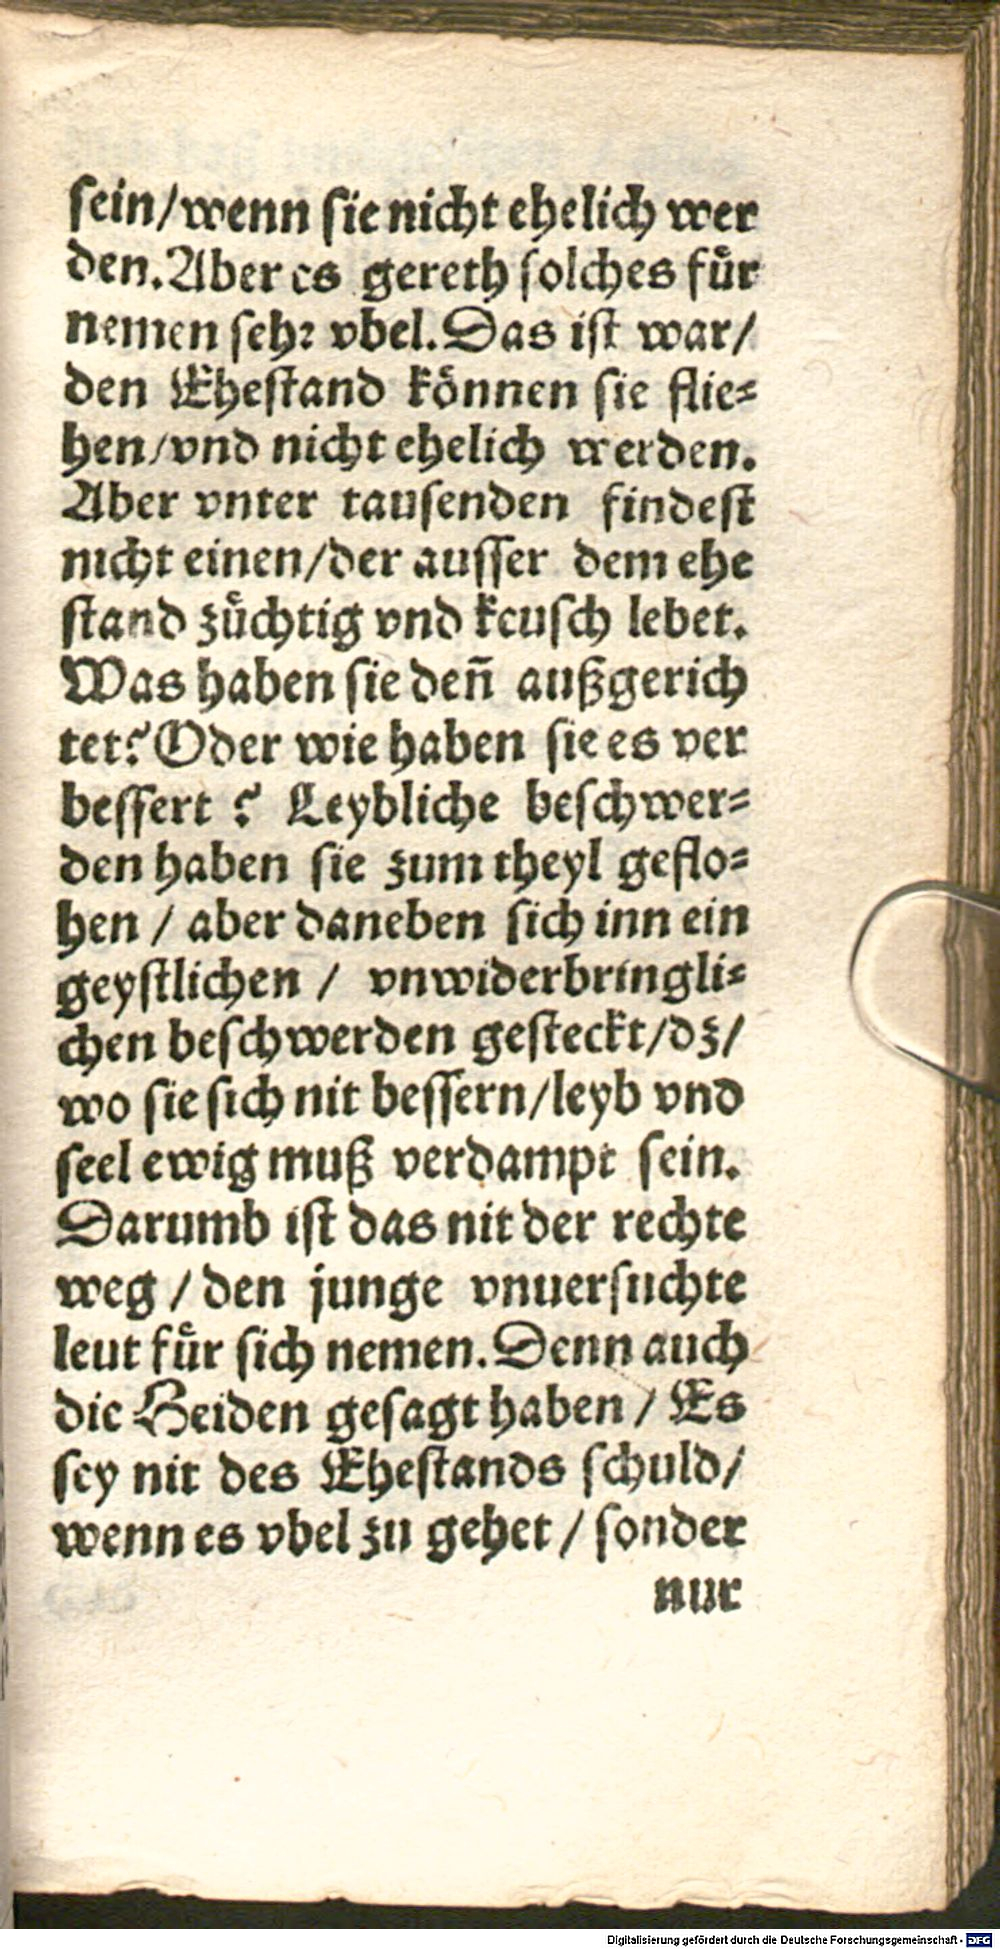 sein/wenn sie nicht ehelich wer
den.Aber es gereth solches fuͤr
nemen sehꝛ vbel.Das ist war/
den Ehestand koͤnnen sie flie⸗
hen/vnd nicht ehelich werden.
Aber vnter tausenden findest
nicht einen/der ausser dem ehe
stand zuͤchtig vnd keusch lebet.
Was haben sie deñ außgerich
tet? Oder wie haben sie es ver
bessert ? Leybliche beschwer⸗
den haben sie zum theyl geflo⸗
hen / aber daneben sich inn ein
geystlichen / vnwiderbringli⸗
chen beschwerden gesteckt/dz/
wo sie sich nit bessern/leyb vnd
seel ewig muß verdampt sein.
Darumb ist das nit der rechte
weg / den junge vnuersuchte
leut fuͤr sich nemen.Denn auch
die Heiden gesagt haben / Es
sey nit des Ehestands schuld/
wenn es vbel zu gehet / sonder
nur
Digitalisierung gefördert durch die Deutsche Forschungsgemeinschaft - DFG